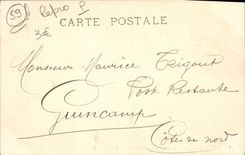 59 Repro
CARTE POSTALE
3€
Monsieur Maurice Trigout
Post Restante
Guincamp
Côtes du nord